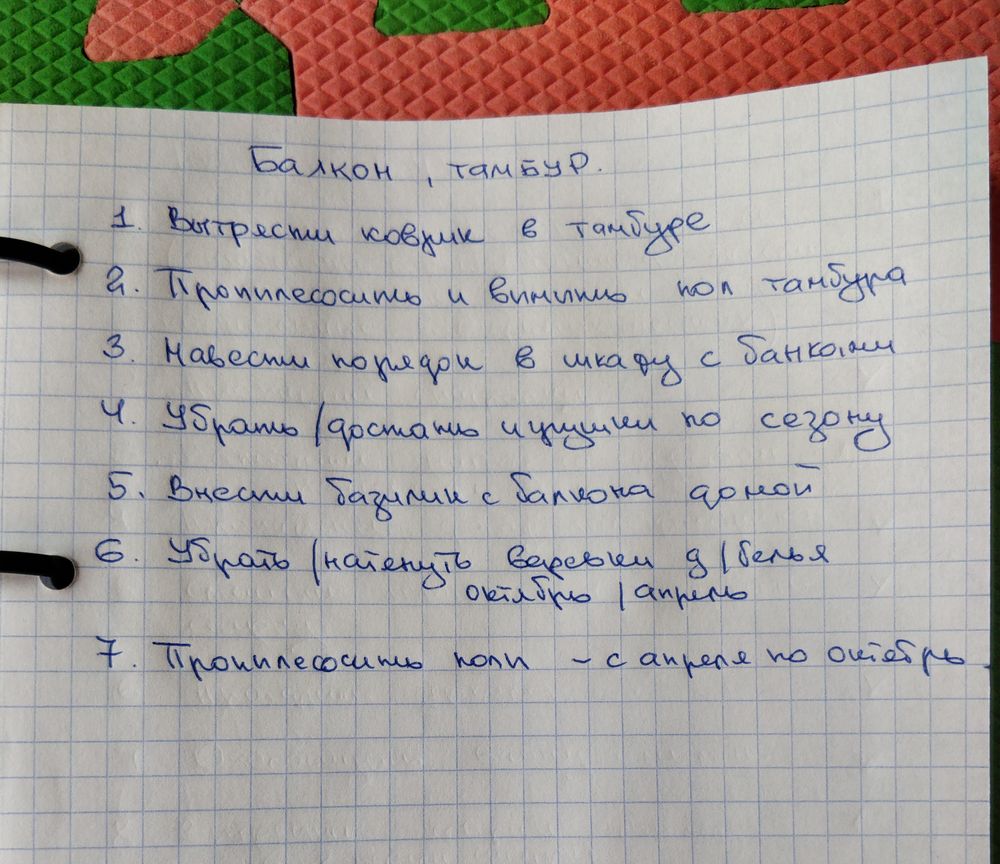 Балкон, тамбур.
1. Вытрясти коврик в тамбуре
2. Пропылесосить и вымыть пол тамбура
3. Навести порядок в шкафу с банками
4. Убрать/достать игрушки по сезону
5. Внести базилик с балкона домой
6. Убрать/натянуть веревки д/белья
октябрь/апрель
7. Пропылесосить полы - с апреля по октябрь.